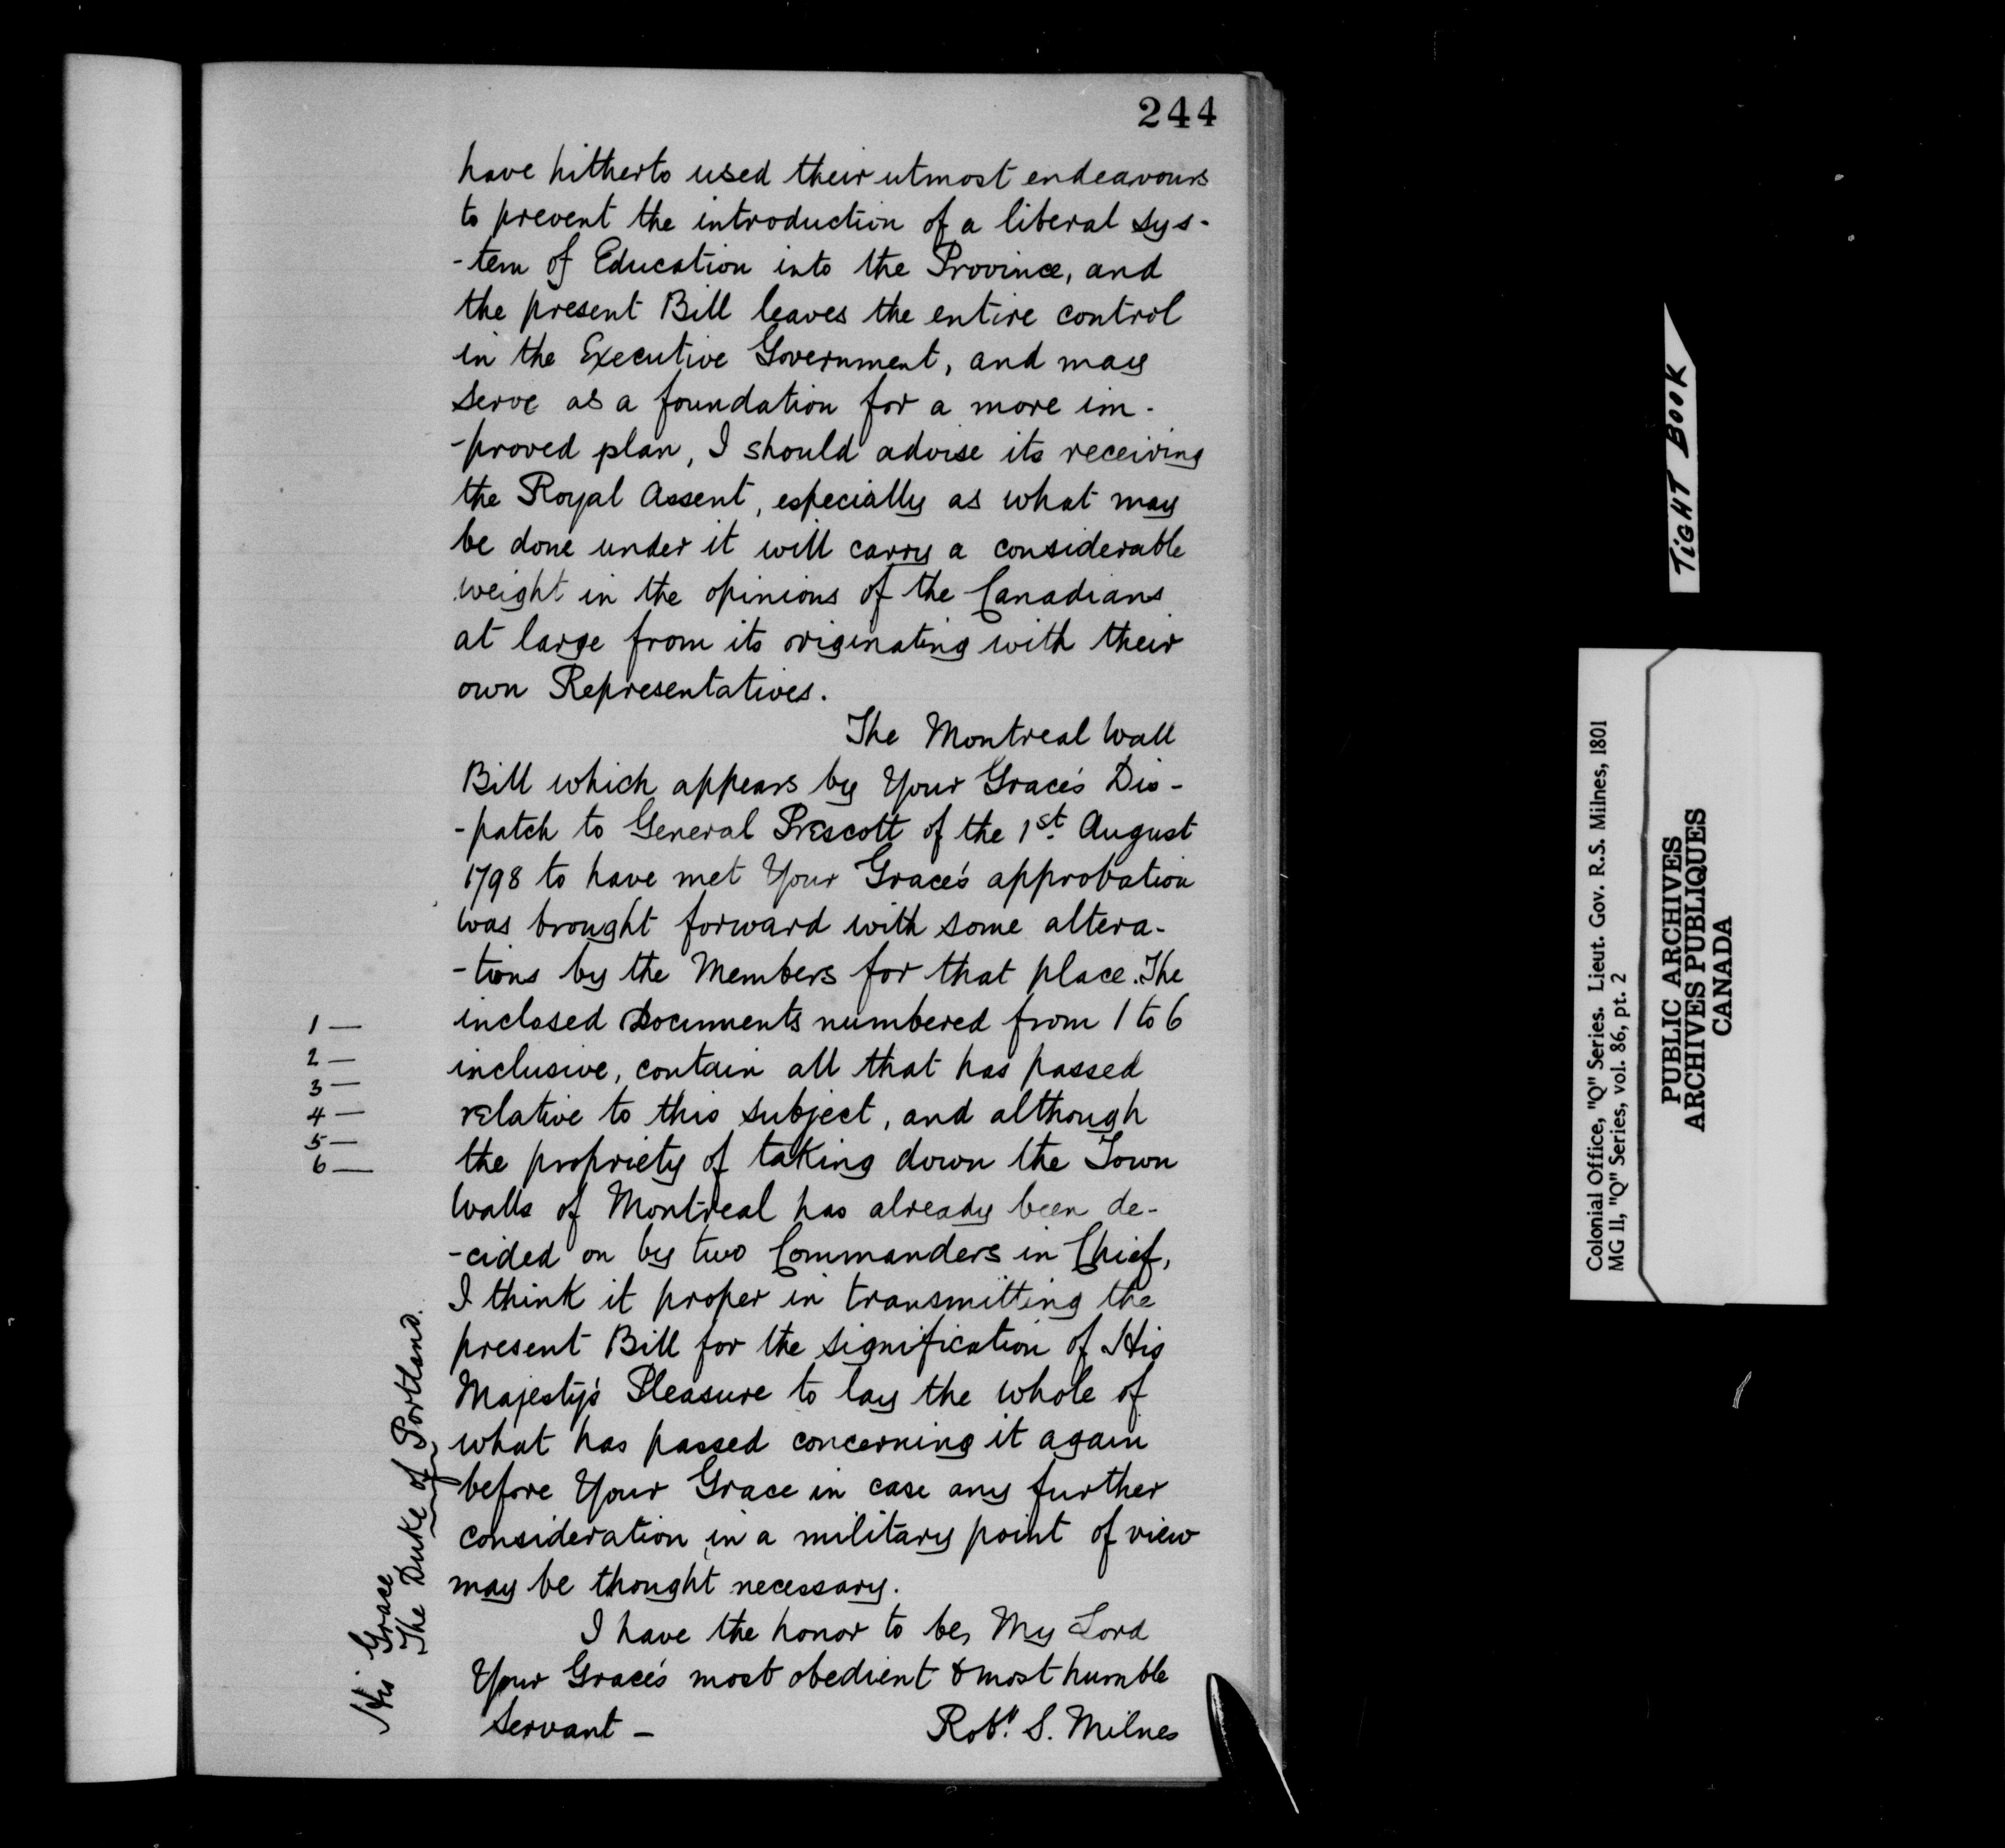 244
have hitherto used their utmost endeavours
to prevent the introduction of a liberal sys-
-tem of Education into the Province, and
the present Bill leaves the entire control
in the Executive Government, and may
serve as a foundation for a more im-
-proved plan, I should advise its receiving
the Royal Assent, especially as what may
be done under it will carry a considerable
weight in the opinions of the Canadians
at large from its originating with their
own Representatives.
The Montreal Wall
Bill which appears by Your Grace's Dis-
-patch to General Prescott of the 1st August
1798 to have met Your Grace's approbation
was brought forward with some altera-
-tions by the Members for that place. The
inclosed Documents numbered from 1 to 6
inclusive, contain all that has passed
relative to this subject, and although
the propriety of taking down the Town
Walls of Montreal has already been de-
-cided on by two Commanders in Chief,
I think it proper in transmitting the
present Bill for the signification of His
Majesty's Pleasure to lay the whole of
what has passed concerning it again
before Your Grace in case any further
consideration in a military point of view
may be thought necessary.
I have the honor to be, My Lord
Your Grace's most obedient & most humble
Servant –
Robt. S. Milnes
1 —
2 —
3 —
4 —
5 —
6 —
His Grace
The Duke of Portland.
TIGHT BOOK
Colonial Office, "Q" Series. Lieut. Gov. R.S. Milnes, 1801
MG 11, "Q" Series, vol. 86, pt. 2
PUBLIC ARCHIVES
ARCHIVES PUBLIQUES
CANADA